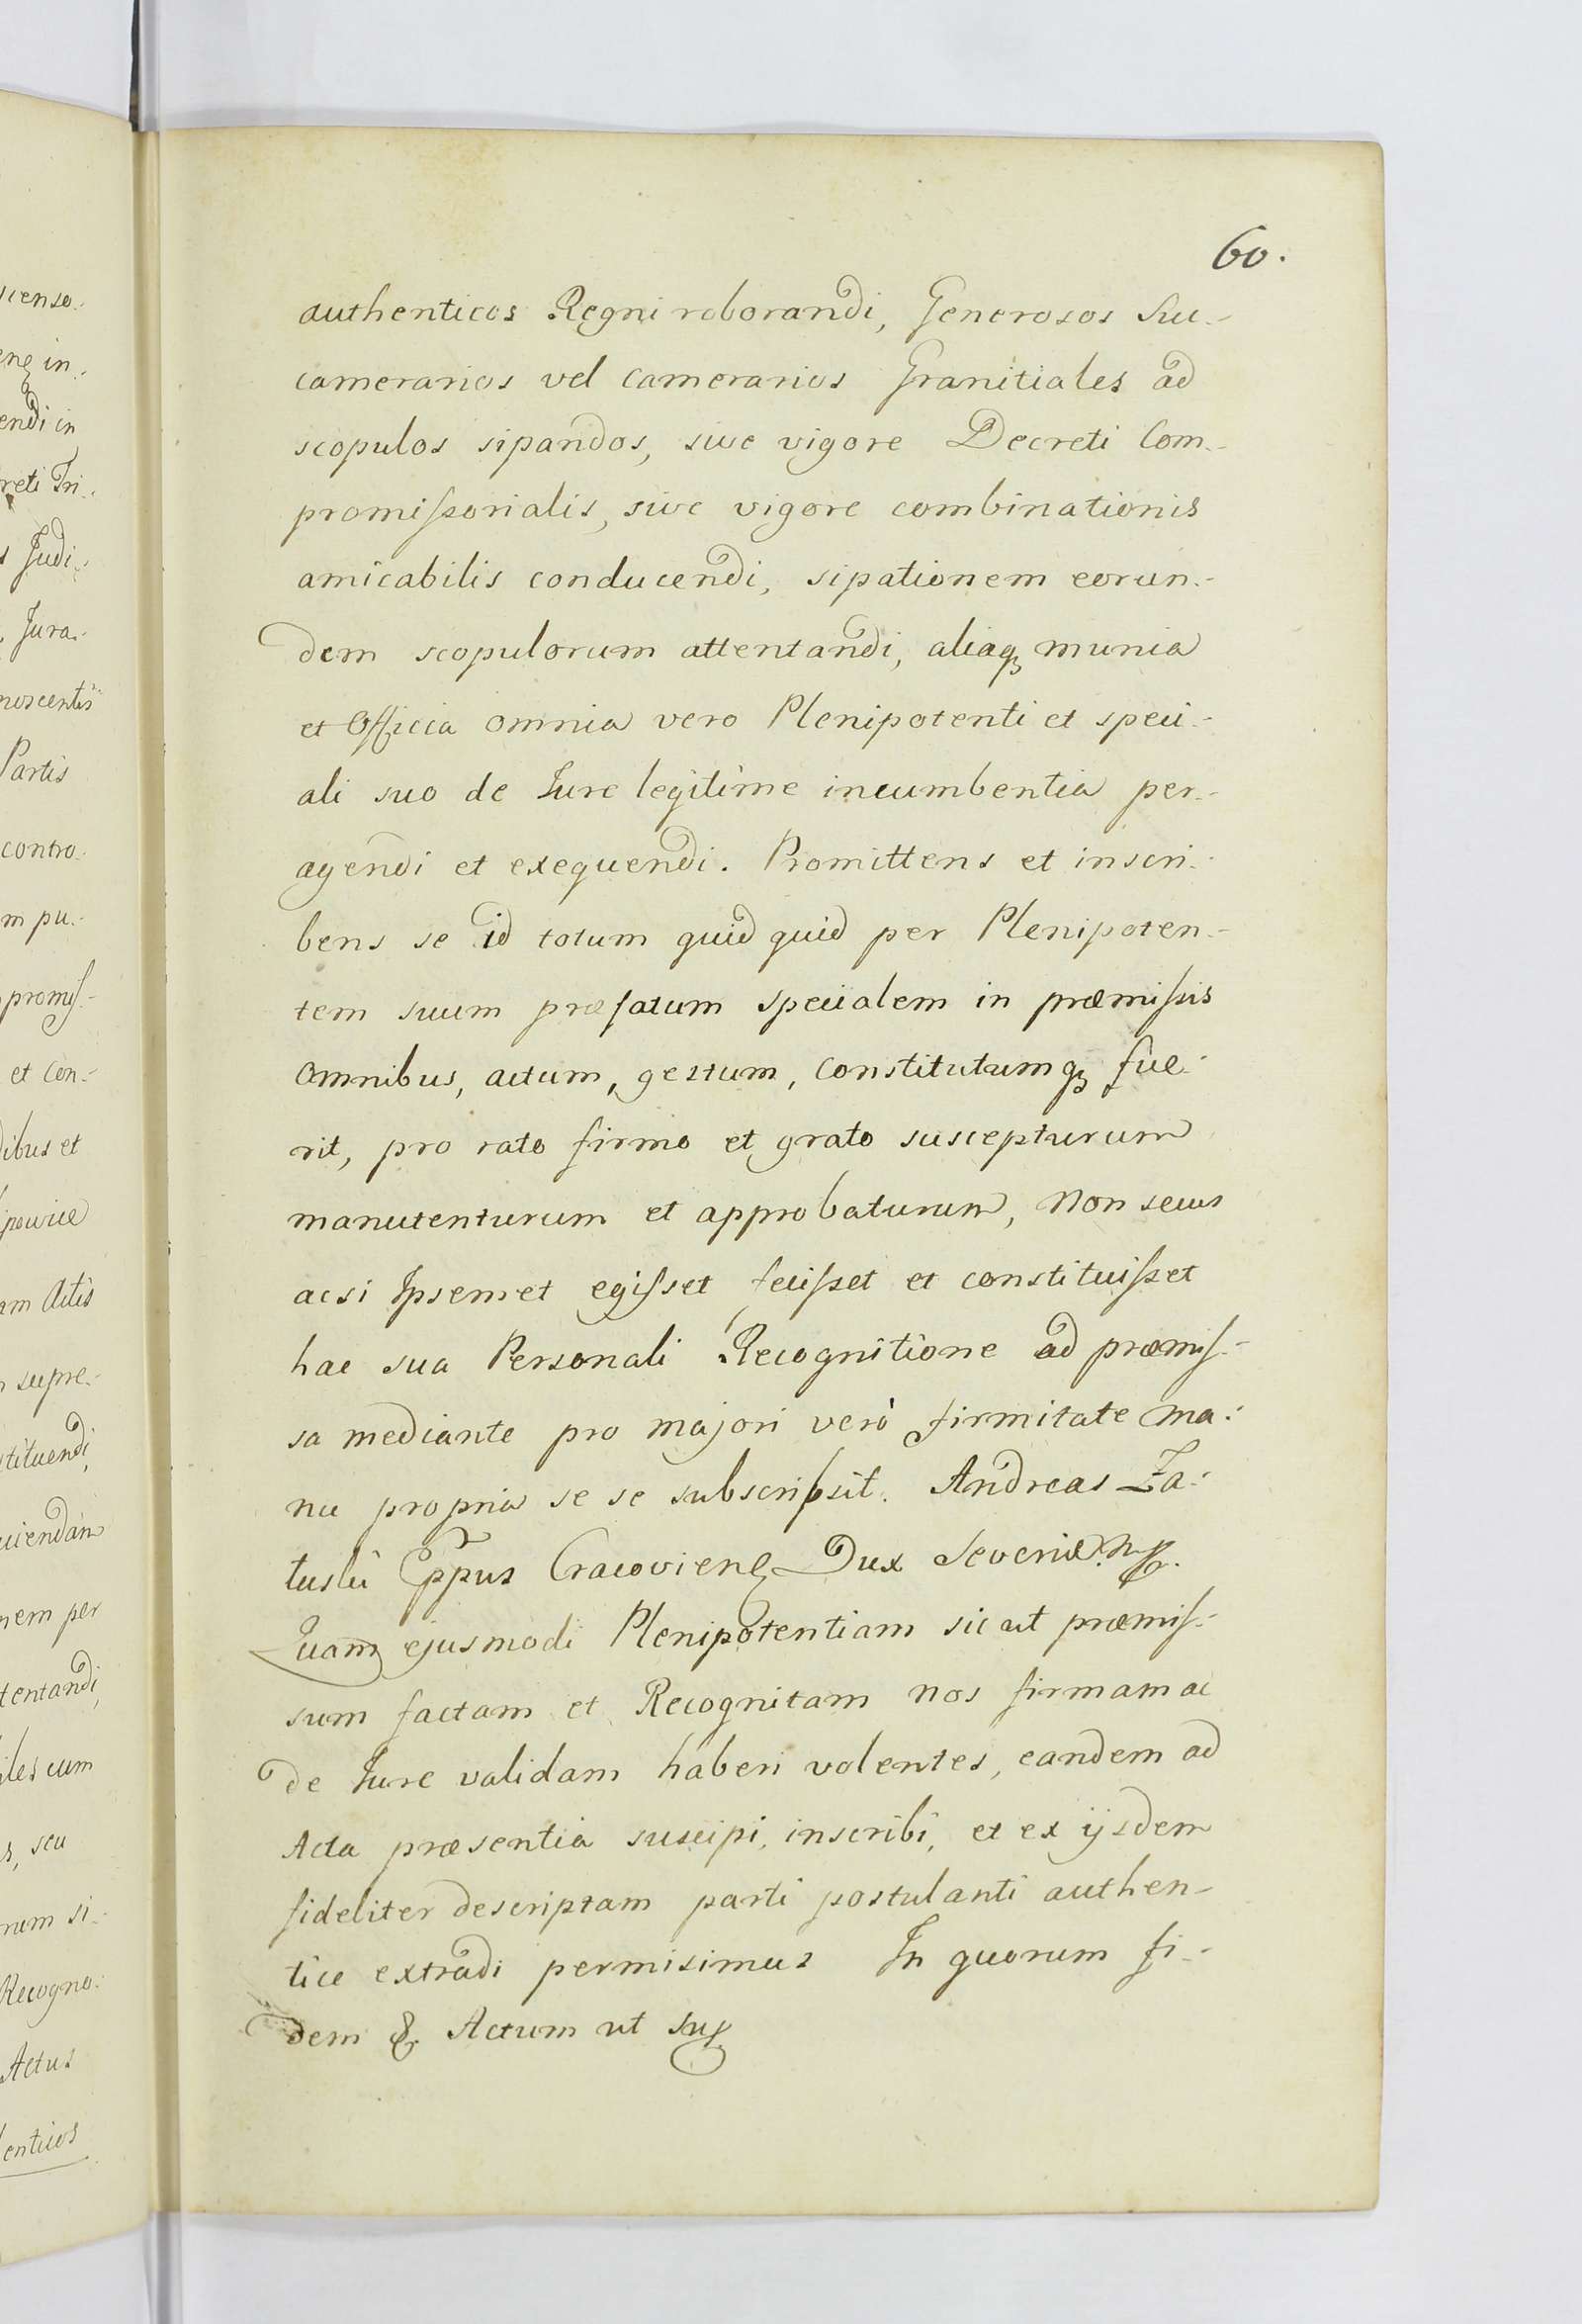 60.
authenticos Regni roborandi, Generosos Suc-
camerarios vel Camerarios Granitiales ad
scopulos sipandos, sive vigore Decreti Com-
promissorialis, sive vigore combinationis
amicabilis conducendi, sipationem eorun-
dem scopulorum attentandi, aliaq munia
et Officia omnia vero Plenipotenti et speci-
ali suo de Jure legitime incumbentia per-
agendi et exequendi. Promittens et inscri-
bens se id totum quid quid per Plenipoten-
tem suum præfatum specialem in præmissis
omnibus, actum, gestum, constitutumq fue-
rit, pro rato firmo et grato suscepturum
manutenturum et approbaturum, non secus
ac si Ipsemet egisset fecisset et constituisset
hac sua Personali Recognitione ad præmis-
sa mediante pro majori verò firmitate ma-
nu propria se se subscripsit. Andreas Za-
łuski Eppus Cracovien Dux Severiæ mp.
Quam ejusmodi Plenipotentiam sic ut præmis-
sum factam et Recognitam nos firmam ac
de Jure validam haberi volentes, eandem ad
Acta præsentia suscipi, inscribi, et ex ijsdem
fideliter descriptam parti postulanti authen-
tice extradi permisimus In quorum fi-
dem & Actum ut sup
scienso-
en in-
endi in
reti Tri-
s Judi-
Jura-
noscentis
Partis
contro-
m pu-
promis-
et Con-
dibus et
am Actis
supre-
stituendi,
ciendam
nem per
tentandi,
iles cum
s, seu
rum si-
Recogno-
Actus
enticos